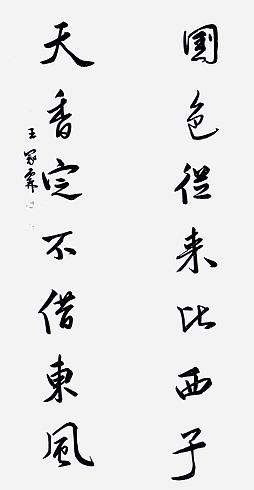 國色從来比西子
天香定不借東風
王